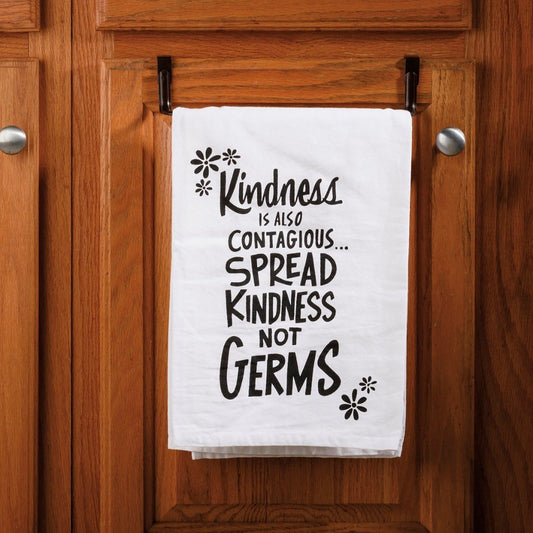 Kindness
IS ALSO
CONTAGIOUS...
SPREAD
KINDNESS
NOT
GERMS